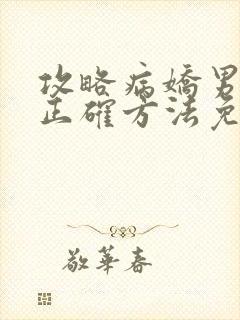 攻略病嬌男
正確方法免
敬華春